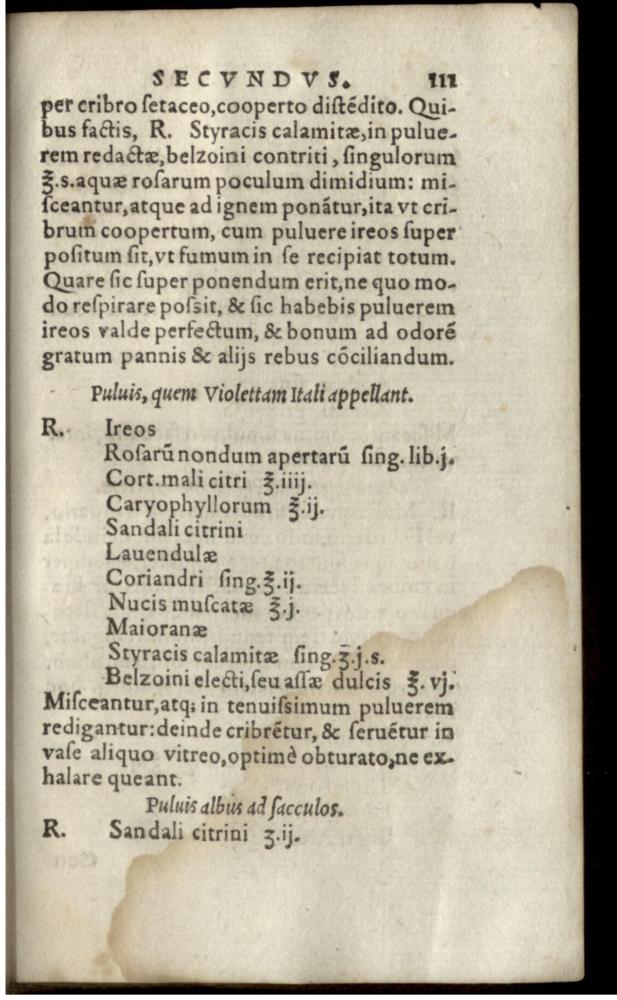 SECVNDVS. 111
per cribro ſetaceo, cooperto diſtēdito. Qui-
bus factis, R. Styracis calamitæ, in pulue-
rem redactæ, belzoini contriti, ſingulorum
℥.s. aquæ roſarum poculum dimidium: mi-
ſceantur, atque ad ignem ponātur, ita vt cri-
brum coopertum, cum puluere ireos ſuper
poſitum ſit, vt fumum in ſe recipiat totum.
Quare ſic ſuper ponendum erit, ne quo mo-
do reſpirare poſsit, & ſic habebis puluerem
ireos valde perfectum, & bonum ad odorē
gratum pannis & alijs rebus cōciliandum.
Puluis, quem Violettam Itali appellant.
R. Ireos
Roſarū nondum apertarū ſing. lib.j.
Cort. mali citri ℥.iiij.
Caryophyllorum ℥.ij.
Sandali citrini
Lauendulæ
Coriandri ſing. ℥.ij.
Nucis muſcatæ ℥.j.
Maioranæ
Styracis calamitæ ſing. ℥.j.s.
Belzoini electi, ſeu aſſæ dulcis ℥.vj.
Miſceantur, atq; in tenuiſsimum puluerem
redigantur: deinde cribrētur, & ſeruētur in
vaſe aliquo vitreo, optimè obturato, ne ex-
halare queant.
Puluis albus ad ſacculos.
R. Sandali citrini ʒ.ij.